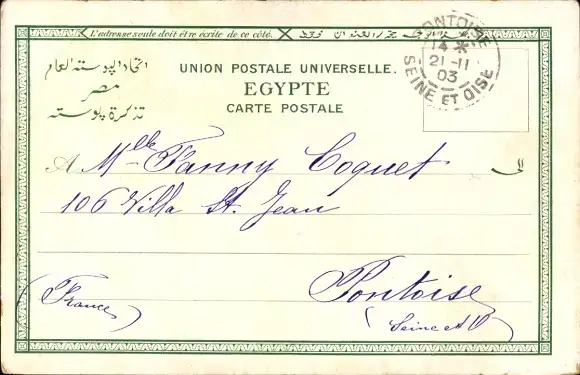 L'adresse seule doit être écrite de ce côté.
PONTOISE
14 *
21-11
03
SEINE ET OISE
اتحاد البوسته العام
مصر
تذكرة بوسته
UNION POSTALE UNIVERSELLE.
EGYPTE
CARTE POSTALE
A Mlle Fanny Coquet
الى
106 Villa St. Jean
Pontoise
(Seine et O)
(France)